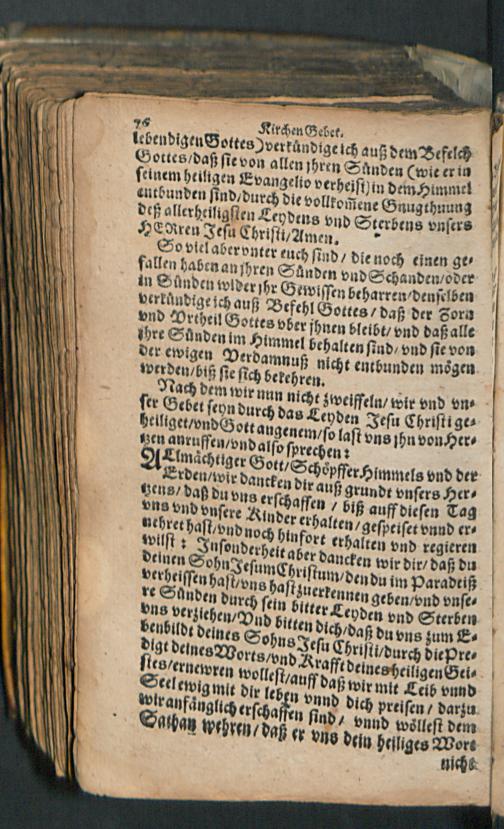 76
Kirchen Gebet.
lebendigen Gottes) verkündige ich auß dem Befelch
Gottes/ daß sie von allen jhren Sünden (wie er in
seinem heiligen Evangelio verheist) in dem Himmel
entbunden sind/ durch die vollkom̄ene Gnugthuung
deß allerheiligsten Leydens vnd Sterbens vnsers
HERren Jesu Christi/ Amen.
So viel aber vnter euch sind/ die noch einen ge⸗
fallen haben an jhren Sünden vnd Schanden/ oder
in Sünden wider jhr Gewissen beharren/ denselben
verkündige ich auß Befehl Gottes/ daß der Zorn
vnd Vrtheil Gottes vber jhnen bleibt/ vnd daß alle
jhre Sünden im Himmel behalten sind/ vnd sie von
der ewigen Verdamnuß nicht entbunden mögen
werden/ biß sie sich bekehren.
Nach dem wir nun nicht zweiffeln/ wir vnd vn⸗
ser Gebet seyn durch das Leyden Jesu Christi ge⸗
heiliget/ vnd Gott angenem/ so last vns jhn von Her⸗
tzen anruffen/ vnd also sprechen:
ALmächtiger Gott/ Schöpffer Himmels vnd der
Erden/ wir dancken dir auß grundt vnsers Her⸗
tzens/ daß du vns erschaffen / biß auff diesen Tag
vns vnd vnsere Kinder erhalten/ gespeiset vnnd er⸗
nehret hast/ vnd noch hinfort erhalten vnd regieren
wilst: Insonderheit aber dancken wir dir/ daß du
deinen Sohn Jesum Christum/ den du im Paradeiß
verheissen hast/ vns hast zuerkennen geben/ vnd vnse⸗
re Sünden durch sein bitter Leyden vnd Sterben
vns verziehen/ Vnd bitten dich/ daß du vns zum E⸗
benbildt deines Sohns Jesu Christi/ durch die Pre⸗
digt deines Worts/ vnd Krafft deines heiligen Gei⸗
stes/ ernewren wollest/ auff daß wir mit Leib vnnd
Seel ewig mit dir leben vnnd dich preisen/ darzu
wir anfänglich erschaffen sind/ vnnd wöllest dem
Sathan wehren/ daß er vns dein heiliges Wort
nicht